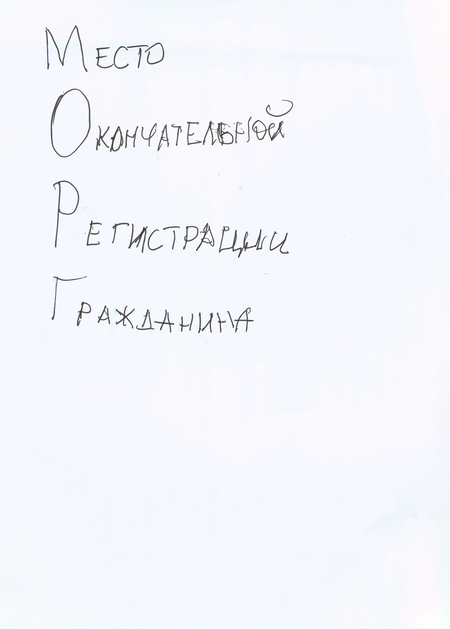 Место
Окончательной
Регистрации
Гражданина